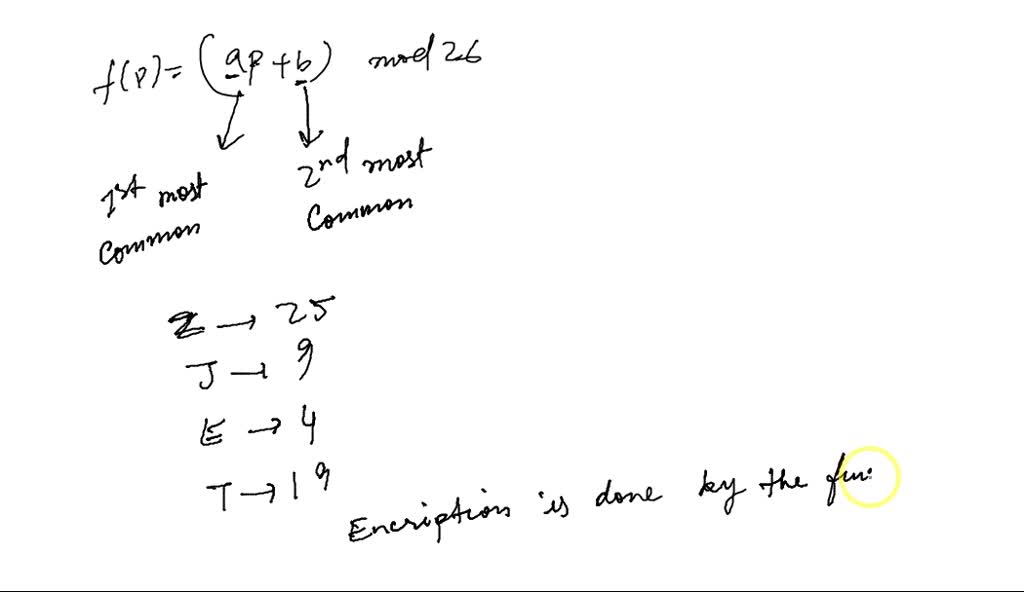 f(p) = (ap + b) mod 26
1st most common
2nd most common
Z → 25
J → 9
E → 4
T → 19
Encription is done by the fun